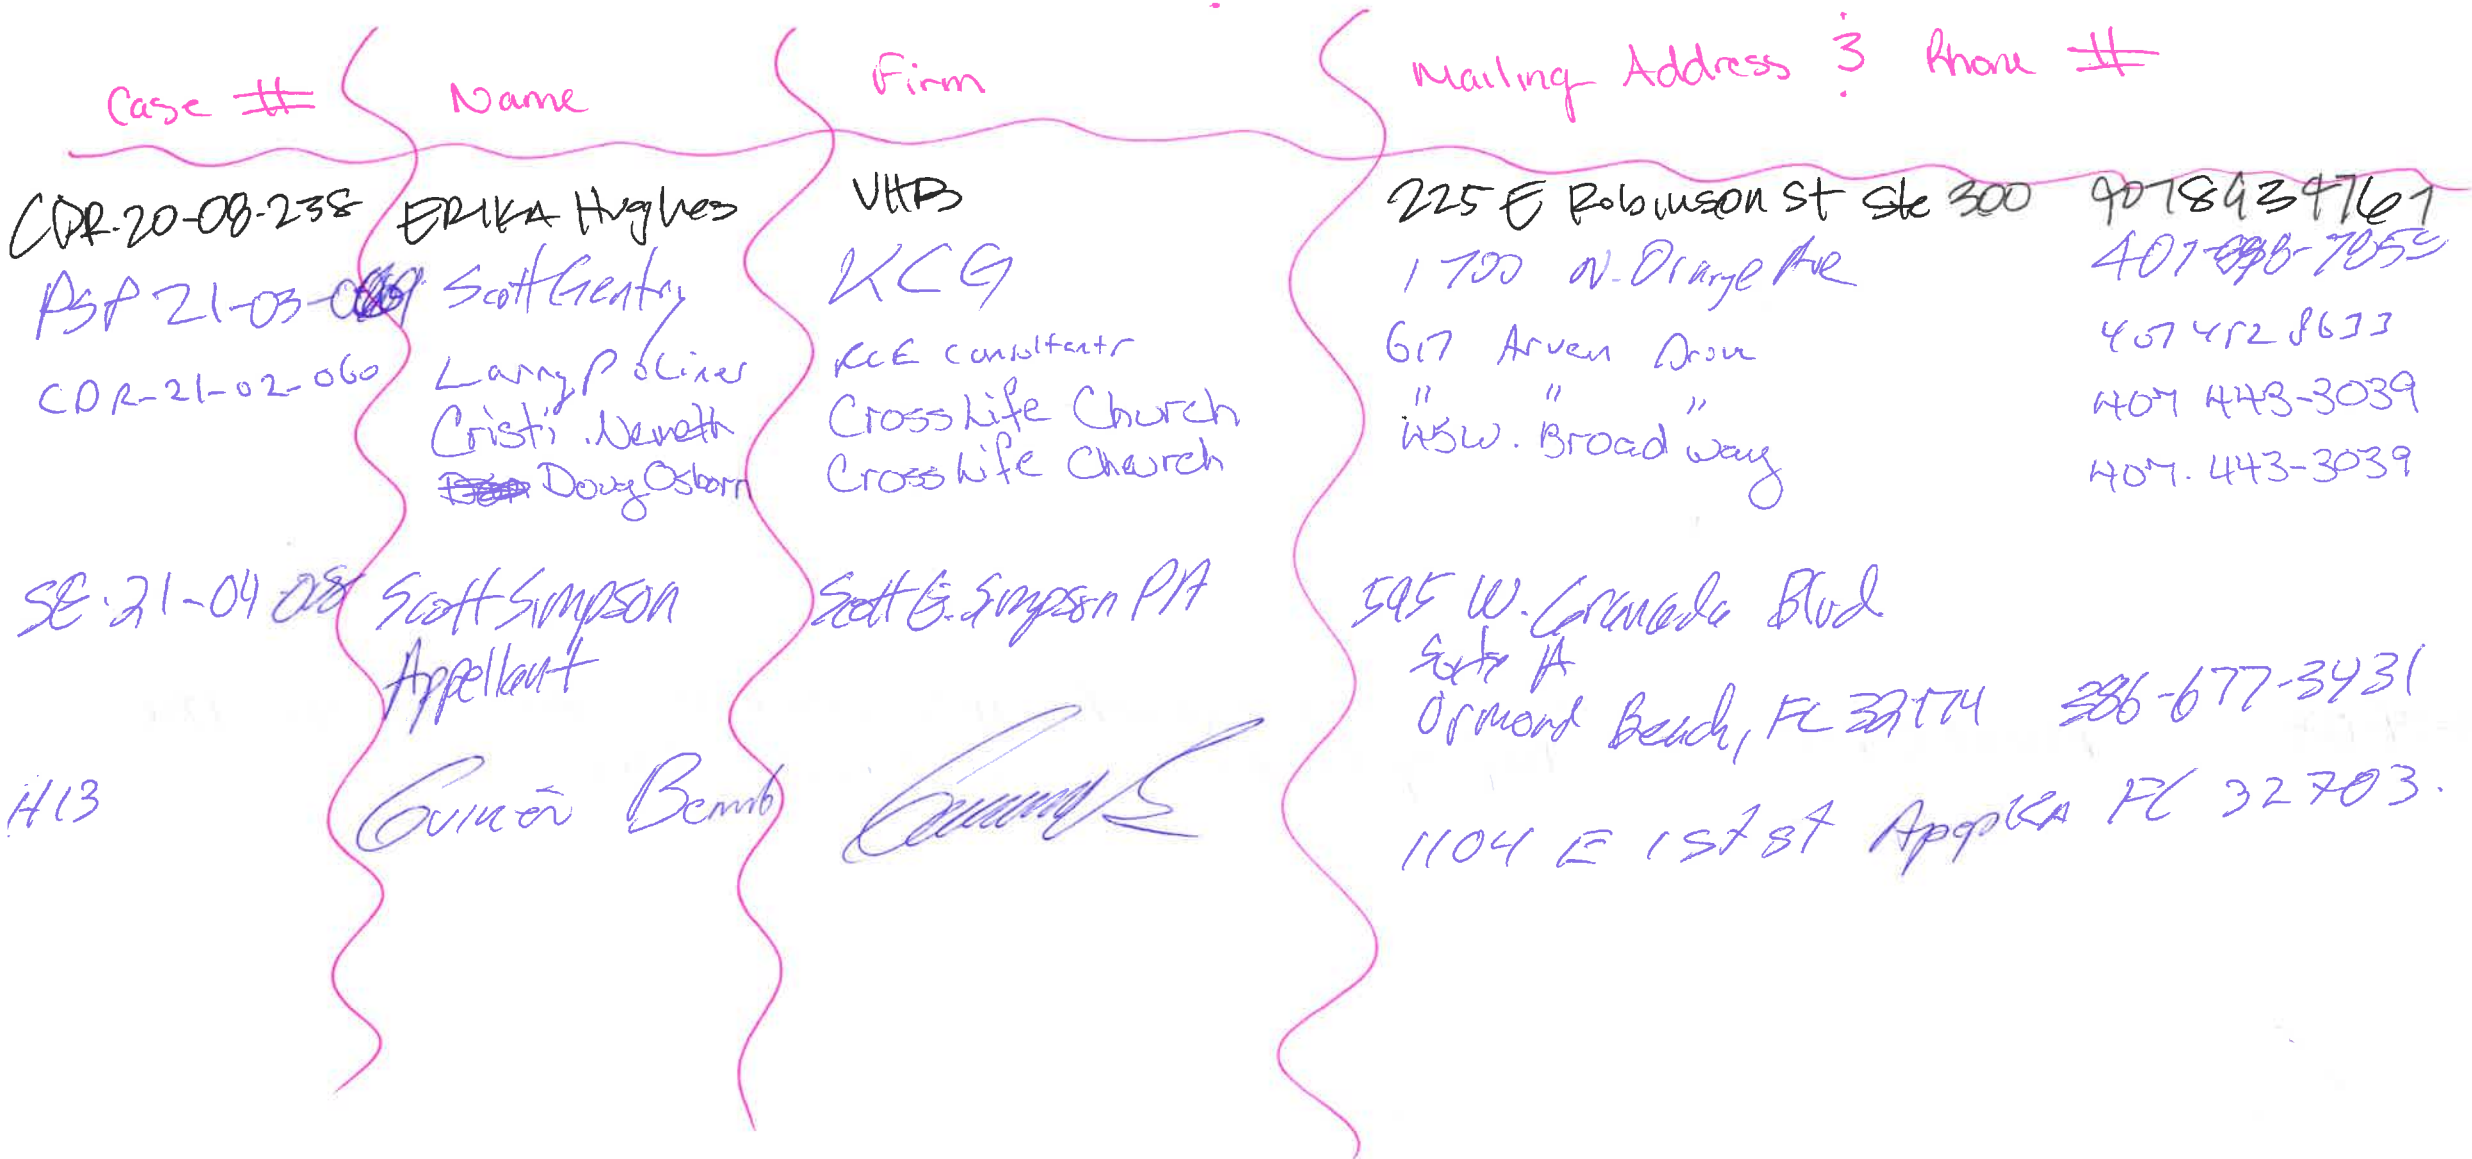 Case # Name Firm Mailing Address & Phone #
CDR-20-08-238 ERIKA Hughes VHB 225 E Robinson St Ste 300 4078934761
PSP 21-03- Scott Gentry KCG 1700 N. Orange Ave 407-
CDR-21-02-060 Larry Poliner RCE Consultants 617 Arvern Drive 407 452 8633
Cristi Nemeth CrossLife Church " " " 407 443-3039
Doug Osborn CrossLife Church 45 W. Broadway 407.443-3039
SE-21-04 Scott Simpson Scott E. Simpson PA 595 W. Granada Blvd
Appellant Suite A
Ormond Beach, FL 32174 386-677-3431
1104 E 1st st Apopka Fl 32703.